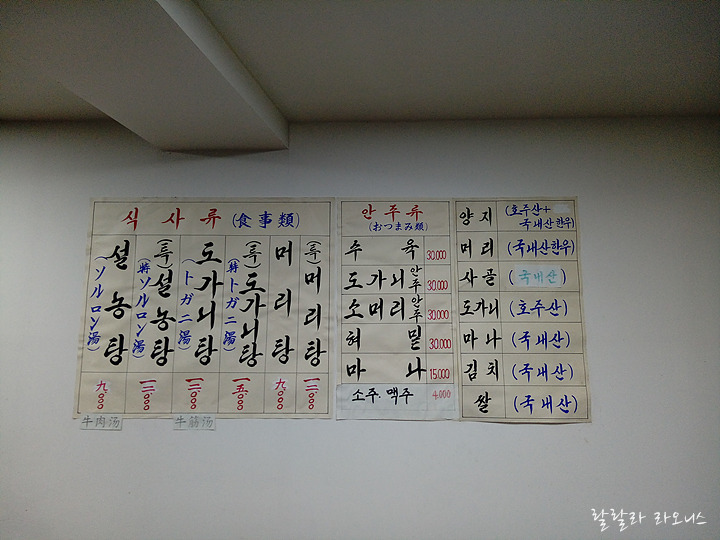 식사류 (食事類)
설농탕 (ソルロン湯) 九,000
(특)설농탕 (特ソルロン湯) 一二,000
도가니탕 (トガニ湯) 一二,000
(특)도가니탕 (特トガニ湯) 一五,000
머리탕 九,000
(특)머리탕 一二,000
牛肉汤
牛筋汤
안주류
(おつまみ類)
수육 30.000
도가니 안주 30.000
소머리 안주 30.000
혀밑 30.000
마나 15.000
소주.맥주 4.000
양지 (호주산+국내산한우)
머리 (국내산한우)
사골 (국내산)
도가니 (호주산)
마나 (국내산)
김치 (국내산)
쌀 (국내산)
랄랄라 라오니스